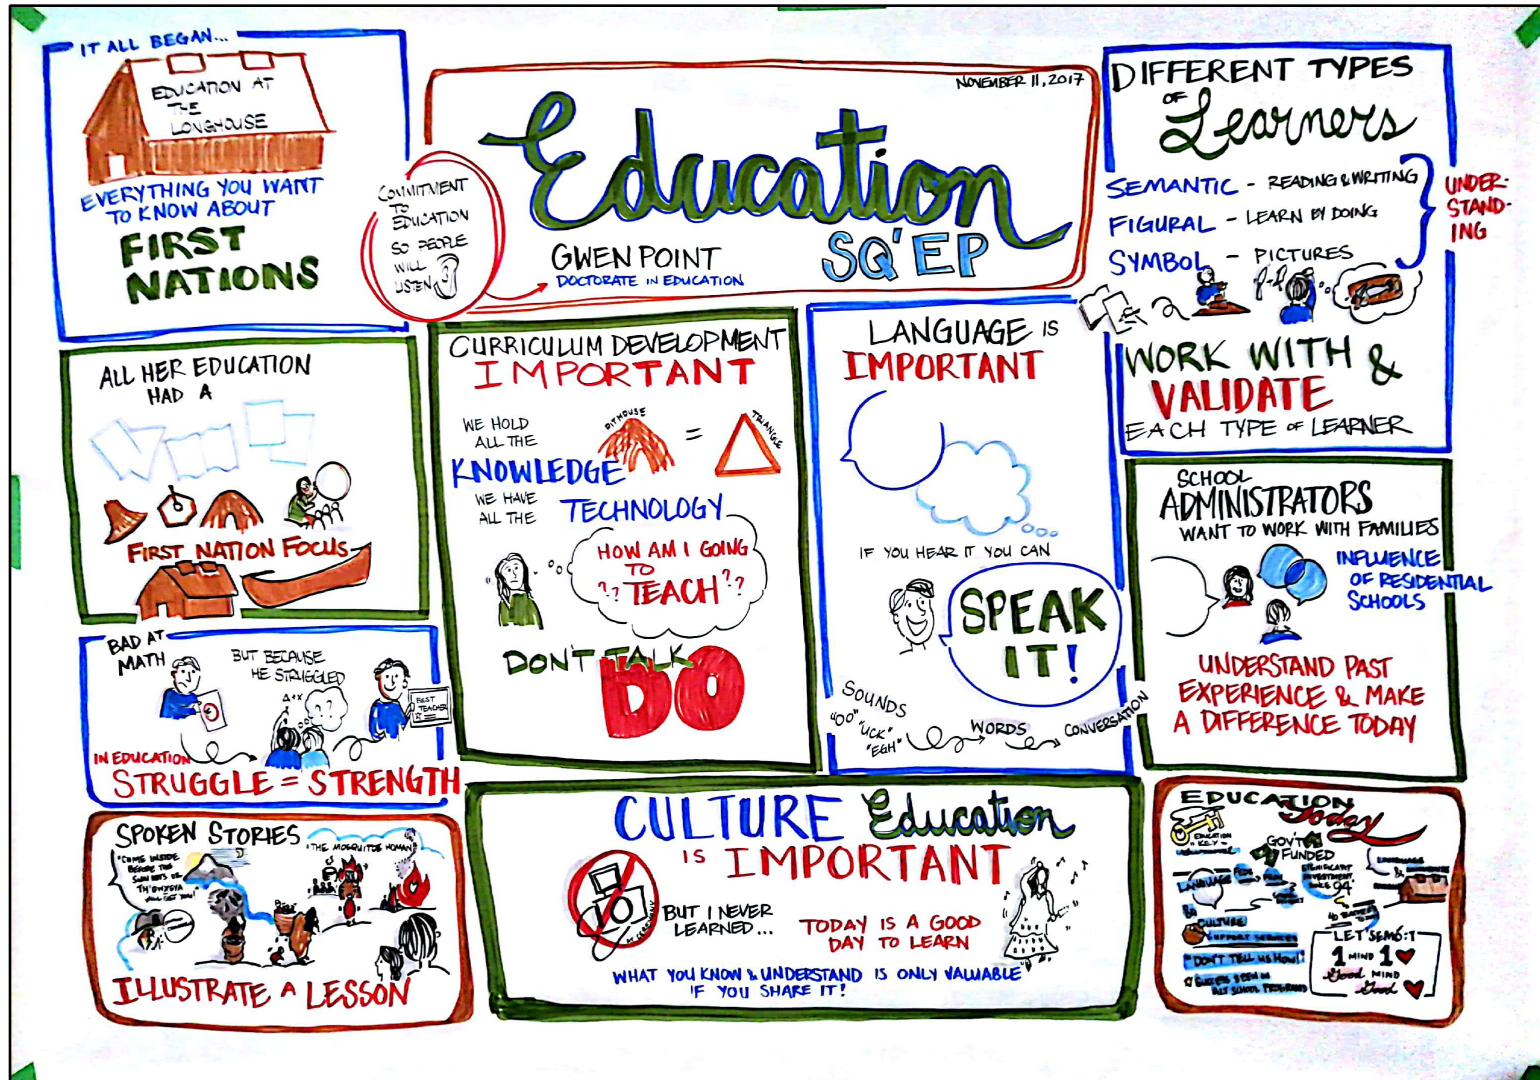 IT ALL BEGAN...
EDUCATION AT
THE
LONGHOUSE
EVERYTHING YOU WANT
TO KNOW ABOUT
FIRST
NATIONS
COMMITMENT
TO
EDUCATION
SO PEOPLE
WILL
LISTEN
NOVEMBER 11, 2017
Education
SQ'EP
GWEN POINT
DOCTORATE IN EDUCATION
DIFFERENT TYPES
OF
Learners
SEMANTIC - READING & WRITING
FIGURAL - LEARN BY DOING
SYMBOL - PICTURES
UNDER-
STAND-
ING
WORK WITH &
VALIDATE
EACH TYPE OF LEARNER
ALL HER EDUCATION
HAD A
FIRST NATION FOCUS
CURRICULUM DEVELOPMENT
IMPORTANT
WE HOLD
ALL THE
KNOWLEDGE
PITHOUSE
=
TRIANGLE
WE HAVE
ALL THE
TECHNOLOGY
HOW AM I GOING
TO
?? TEACH ??
DON'T TALK
DO
LANGUAGE IS
IMPORTANT
IF YOU HEAR IT YOU CAN
SPEAK
IT!
SOUNDS
"OO" "UCK"
"EGH"
WORDS
CONVERSATION
SCHOOL
ADMINISTRATORS
WANT TO WORK WITH FAMILIES
INFLUENCE
OF RESIDENTIAL
SCHOOLS
UNDERSTAND PAST
EXPERIENCE & MAKE
A DIFFERENCE TODAY
BAD AT
MATH
BUT BECAUSE
HE STRUGGLED
BEST
TEACHER
IN EDUCATION
STRUGGLE = STRENGTH
SPOKEN STORIES
"COME INSIDE
BEFORE THE
SUN SETS OR
WILL GET YOU!
"THE MOSQUITOE WOMAN"
ILLUSTRATE A LESSON
CULTURE Education
IS IMPORTANT
BUT I NEVER
LEARNED...
TODAY IS A GOOD
DAY TO LEARN
WHAT YOU KNOW & UNDERSTAND IS ONLY VALUABLE
IF YOU SHARE IT!
EDUCATION
Today
EDUCATION
KEY
GOV'T
FUNDED
LANGUAGE
SIGNIFICANT
INVESTMENT
SINCE 94
LANGUAGE
&
CULTURE
SUPPORT SERVICES
"DON'T TELL US HOW!"
SUCCESS SEEN IN
ALT SCHOOL PROGRAMS
LET'SEMO:T
1 MIND 1
Good MIND
Good